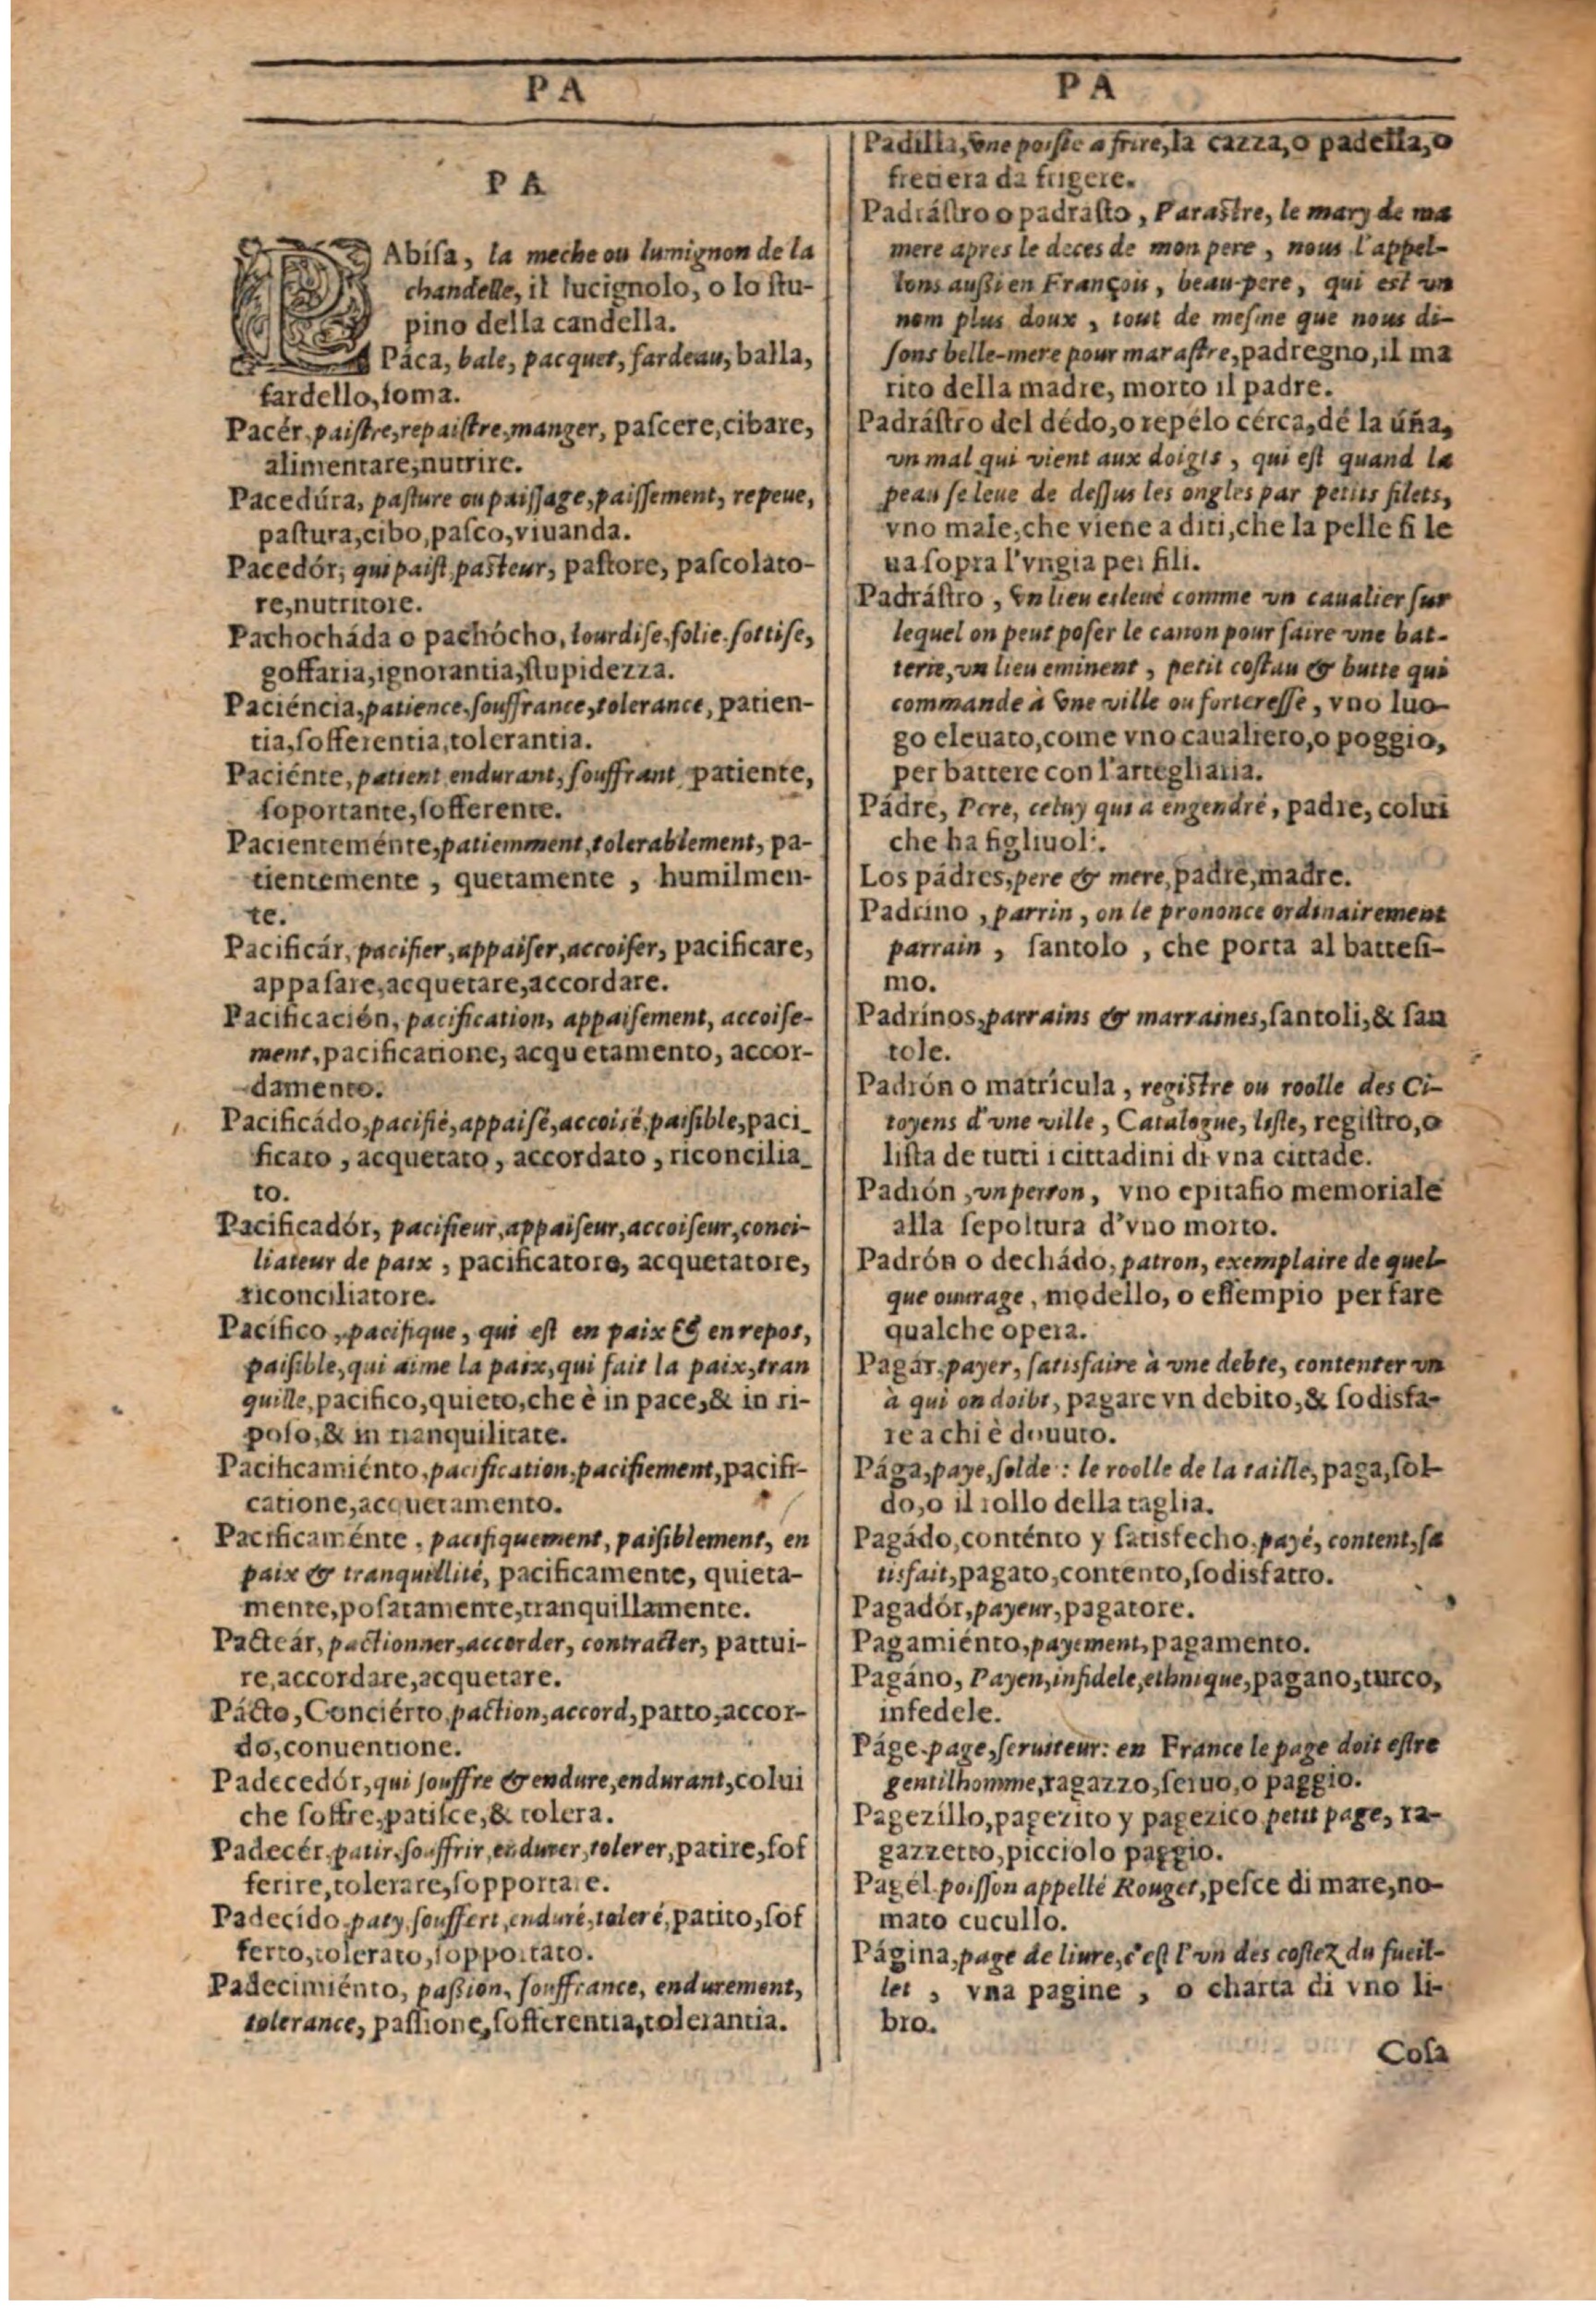 PA
PA
PA
PAbiſa, la meche ou lumignon de la
chandelle, il lucignolo, o lo ſtu-
pino della candella.
Páca, bale, pacquet, fardeau, balla,
fardello, ſoma.
Pacér, paiſtre, repaiſtre, manger, paſcere, cibare,
alimentare, nutrire.
Pacedúra, paſture ou paiſſage, paiſſement, repeue,
paſtura, cibo, paſco, viuanda.
Pacedór, qui paiſt, paſteur, paſtore, paſcolato-
re, nutritore.
Pachocháda o pachócho, lourdiſe, folie, ſottiſe,
goffaria, ignorantia, ſtupidezza.
Paciéncia, patience, ſouffrance, tolerance, patien-
tia, ſofferentia, tolerantia.
Paciénte, patient, endurant, ſouffrant, patiente,
ſoportante, ſofferente.
Pacienteménte, patiemment, tolerablement, pa-
tientemente, quetamente, humilmen-
te.
Pacificár, pacifier, appaiſer, accoiſer, pacificare,
appaſare, acquetare, accordare.
Pacificación, pacification, appaiſement, accoiſe-
ment, pacificatione, acquetamento, accor-
damento.
Pacificádo, pacifié, appaiſé, accoiſé, paiſible, paci-
ficato, acquetato, accordato, riconcilia-
to.
Pacificadór, pacifieur, appaiſeur, accoiſeur, conci-
liateur de paix, pacificatore, acquetatore,
riconciliatore.
Pacífico, pacifique, qui eſt en paix & en repos,
paiſible, qui aime la paix, qui fait la paix, tran
quille, pacifico, quieto, che è in pace, & in ri-
poſo, & in tranquilitate.
Pacificamiénto, pacification, pacifiement, pacifi-
catione, acquetamento.
Pacificaménte, pacifiquement, paiſiblement, en
paix & tranquillité, pacificamente, quieta-
mente, poſatamente, tranquillamente.
Pacteár, pactionner, accorder, contracter, pattui-
re, accordare, acquetare.
Pácto, Conciérto, paction, accord, patto, accor-
do, conuentione.
Padecedór, qui ſouffre & endure, endurant, colui
che ſoffre, patiſce, & tolera.
Padecér, patir, ſouffrir, endurer, tolerer, patire, ſof
ferire, tolerare, ſopportare.
Padecido, paty, ſouffert, enduré, toleré, patito, ſof
ferto, tolerato, ſopportato.
Padecimiénto, paſſion, ſouffrance, endurement,
tolerance, paſſione, ſofferentia, tolerantia.
Padilla, vne poiſle a frire, la cazza, o padella, o
fretiera da frigere.
Padráſtro o padraſto, Paraſtre, le mary de ma
mere apres le deces de mon pere, nous l'appel-
lons auſſi en François, beau-pere, qui eſt vn
nom plus doux, tout de meſme que nous di-
ſons belle-mere pour maraſtre, padregno, il ma
rito della madre, morto il padre.
Padráſtro del dédo, o repélo cérca, dé la úña,
vn mal qui vient aux doigts, qui eſt quand la
peau ſe leue de deſſus les ongles par petits filets,
vno male, che viene a diti, che la pelle ſi le
ua ſopra l'vngia per fili.
Padráſtro, vn lieu esleué comme vn caualier ſur
lequel on peut poſer le canon pour faire vne bat-
terie, vn lieu eminent, petit coſtau & butte qui
commande à vne ville ou fortereſſe, vno luo-
go eleuato, come vno caualiero, o poggio,
per battere con l'artegliaria.
Pádre, Pere, celuy qui a engendré, padre, colui
che ha figliuoli.
Los pádres, pere & mere, padre, madre.
Padrino, parrin, on le prononce ordinairement
parrain, ſantolo, che porta al batteſi-
mo.
Padrínos, parrains & marraines, ſantoli, & ſan
tole.
Padrón o matrícula, regiſtre ou roolle des Ci-
toyens d'vne ville, Catalogue, liſte, regiſtro, o
liſta de tutti i cittadini di vna cittade.
Padrón, vn perron, vno epitafio memoriale
alla ſepoltura d'vno morto.
Padrón o dechádo, patron, exemplaire de quel-
que ouurage, modello, o eſſempio per fare
qualche opera.
Pagár, payer, ſatisfaire à vne debte, contenter vn
à qui on doibt, pagare vn debito, & ſodisfa-
re a chi è douuto.
Pága, paye, ſolde: le roolle de la taille, paga, ſol-
do, o il rollo della taglia.
Pagádo, conténto y ſatisfecho, payé, content, ſa
tisfait, pagato, contento, ſodisfatto.
Pagadór, payeur, pagatore.
Pagamiénto, payement, pagamento.
Pagáno, Payen, infidele, ethnique, pagano, turco,
infedele.
Páge, page, ſeruiteur: en France le page doit eſtre
gentilhomme, ragazzo, ſeruo, o paggio.
Pagezíllo, pagezito y pagezico, petit page, ra-
gazzetto, picciolo paggio.
Pagél, poiſſon appellé Rouget, peſce di mare, no-
mato cucullo.
Página, page de liure, c'eſt l'vn des coſtez du fueil-
let, vna pagine, o charta di vno li-
bro.
Coſa